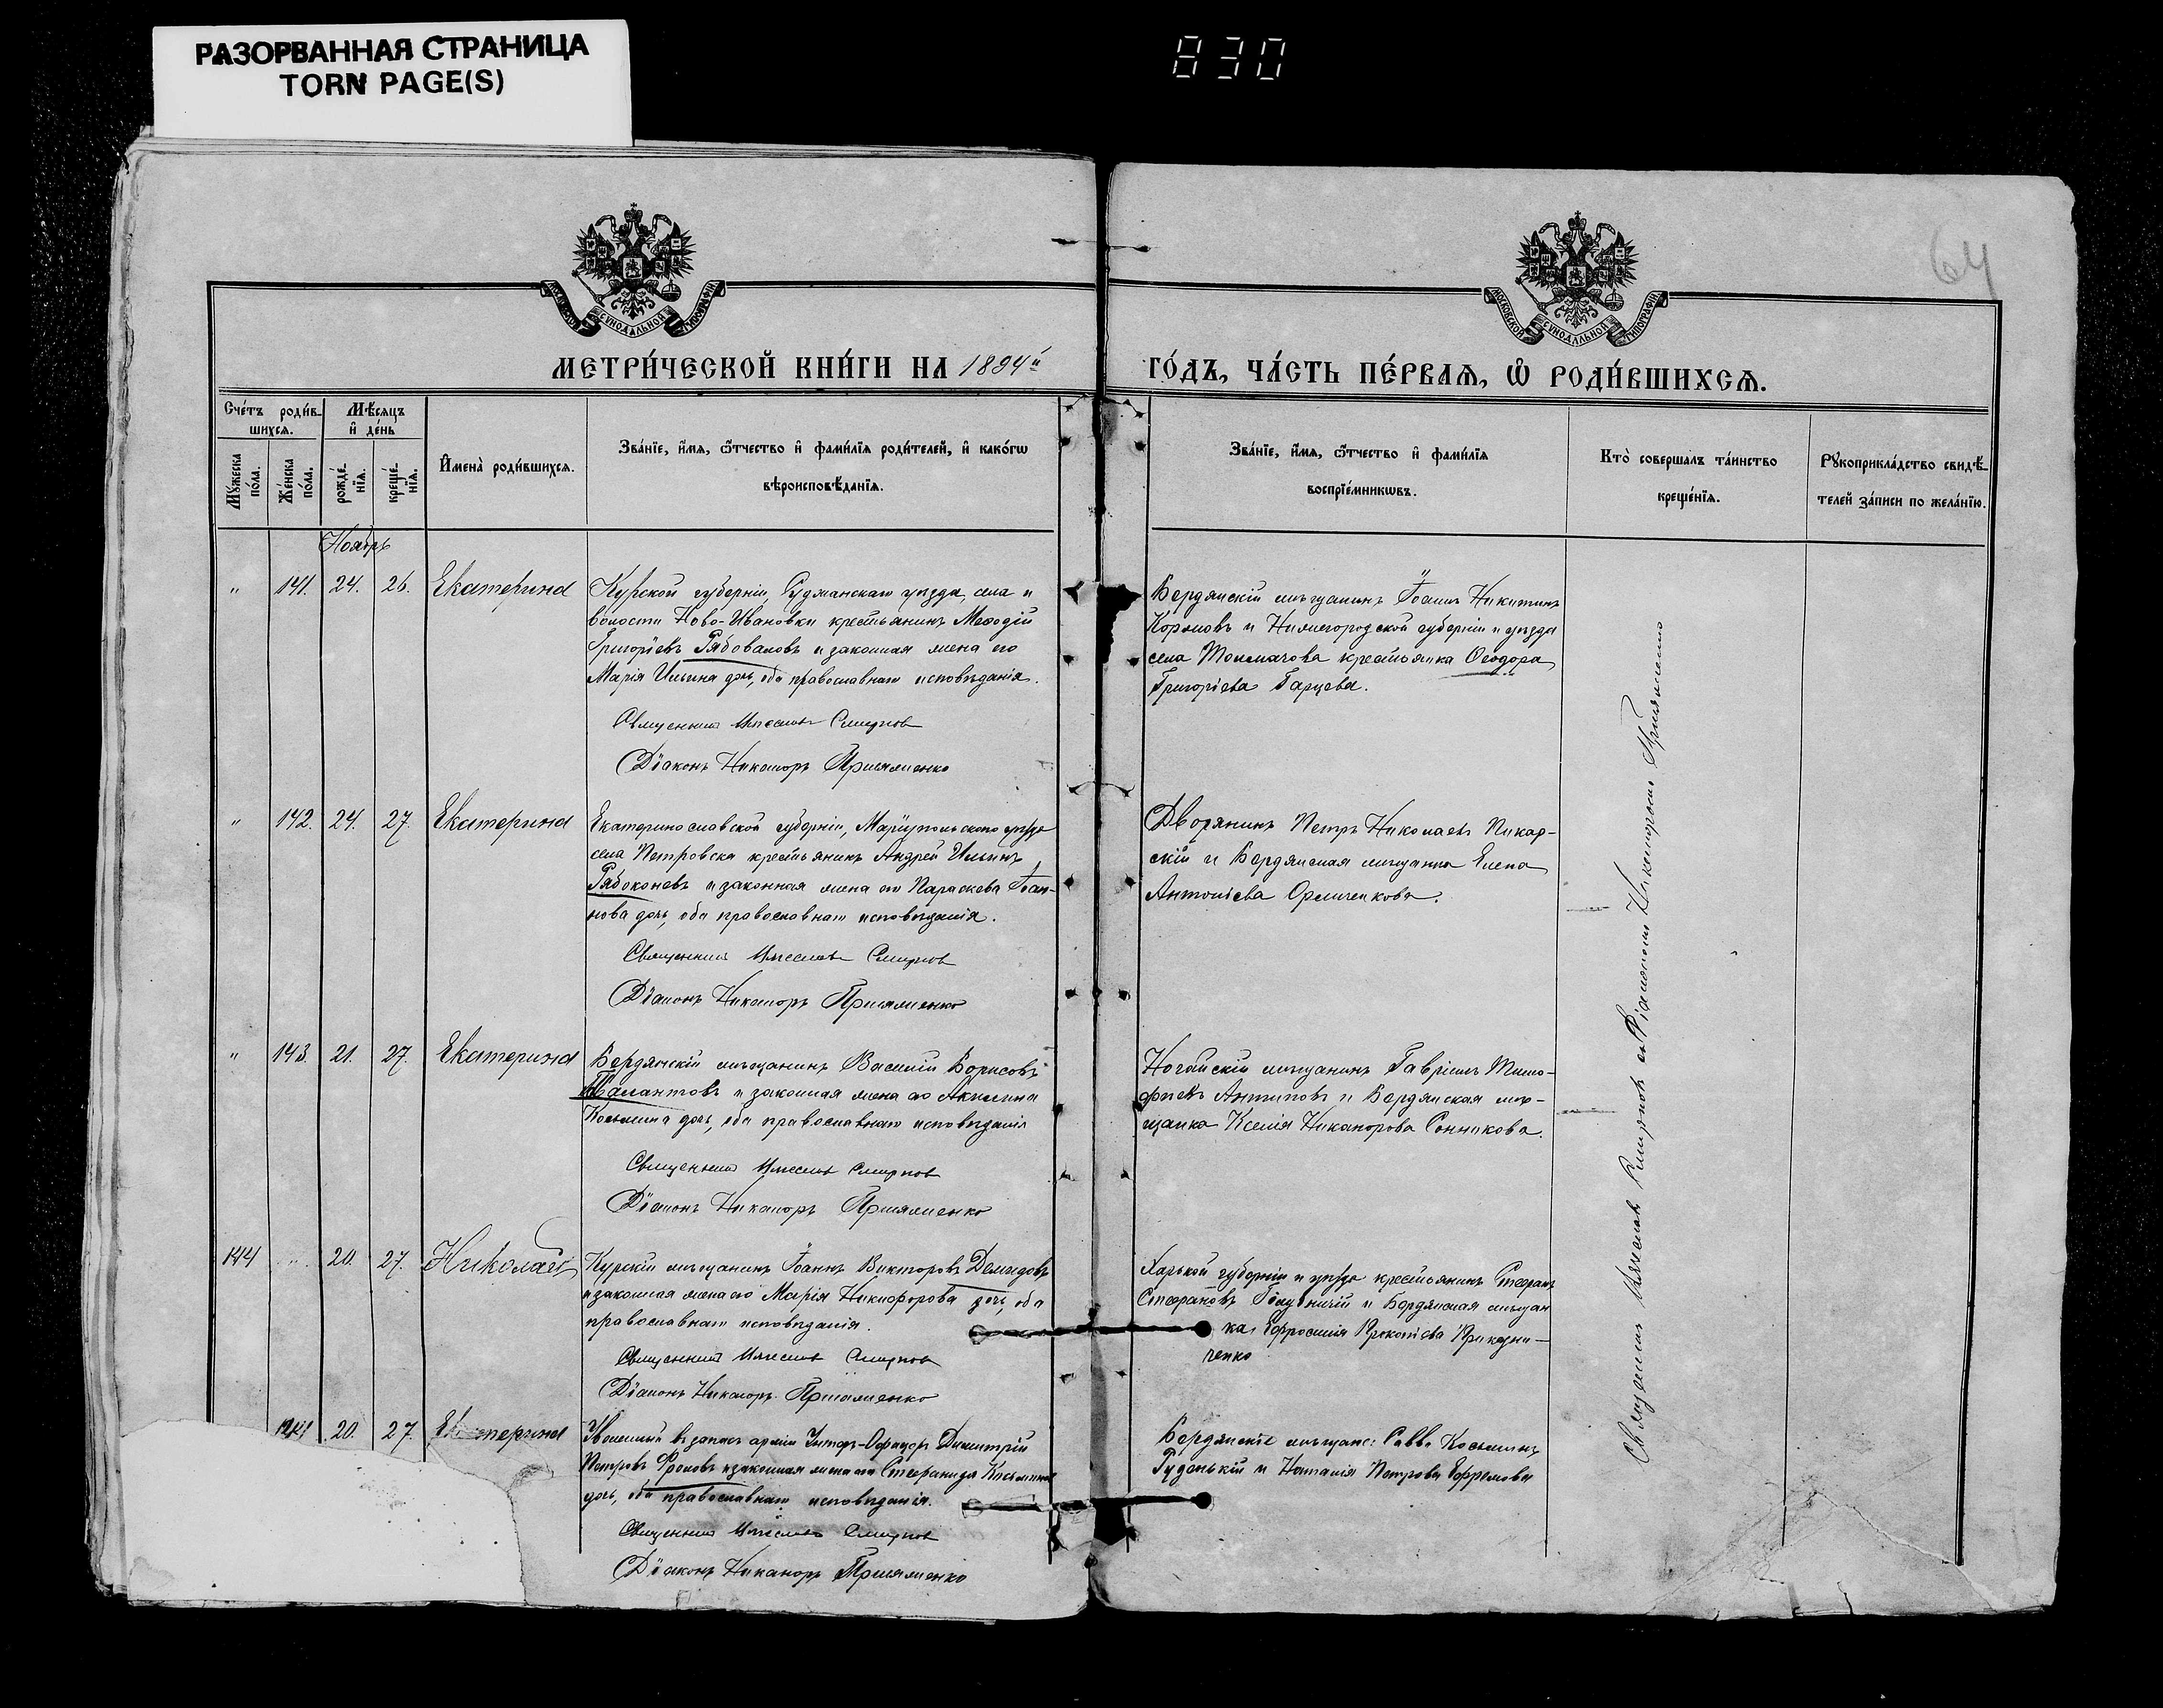 РАЗОРВАННАЯ СТРАНИЦА
TORN PAGE(S)
830
64
МОСКОВСКОЙ СѴНОДАЛЬНОЙ ТИПОГРАФІИ
МОСКОВСКОЙ СѴНОДАЛЬНОЙ ТИПОГРАФІИ
МЕТРИ́ЧЕСКОЙ КНИ́ГИ НА 1894й
ГО́ДЪ, ЧА́СТЬ ПЕ́РВАЯ, Ѡ РОДИ́ВШИХСЯ.
Сче́тъ роди́вшихся.
Мꙋ́жеска по́ла.
Же́нска по́ла.
Мѣ́сяцъ и҆ де́нь
рожде́нїя.
креще́нїя.
И҆мена̀ роди́вшихся.
Зва́нїе, и҆́мя, ѻ҆́тчество и҆ фами́лїя роди́телей, и҆ како́гѡ
вѣроисповѣ́данїя.
Зва́нїе, и҆́мя, ѻ҆́тчество и҆ фами́лїя
воспрїе́мникѡвъ.
Кто̀ соверша́лъ та́инство
креще́нїя.
Рꙋкоприкла́дство свидѣ́-
телей за́писи по жела́нїю.
Ноябрь
" 141. 24. 26. Екатерина
Курской губерніи, Суджанскаго уѣзда, села и
волости Ново-Ивановки крестьянинъ Меѳодій
Григоріевъ Рябоваловъ и законная жена его
Марія Ильина дочь, оба православнаго исповѣданія.
Священникъ Смирнов
Діаконъ Никаноръ
Бердянскій мѣщанинъ Іоаннъ Никитинъ
и Нижегородской губерніи и уѣзда
села крестьянка Ѳеодора
Григоріева
" 142. 24. 27. Екатерина
Екатеринославской губерніи, Маріупольскаго уѣзда
села Петровска крестьянинъ Андрей Ильинъ
Рябоконевъ и законная жена его Параскева Іоан-
нова дочь, оба православнаго исповѣданія.
Священникъ Смирнов
Діаконъ Никаноръ
Дворянинъ Петръ Николаевъ Пикар-
скій и Бердянская мѣщанка Елена
Антоніева
" 143. 21. 27. Екатерина
Бердянскій мѣщанинъ Василій Борисовъ
Талантовъ и законная жена его Акилина
Косьмина дочь, оба православнаго исповѣданія
Священникъ Смирнов
Діаконъ Никаноръ
Ногайскій мѣщанинъ Гавріилъ Тимо-
фѣевъ Антиповъ и Бердянская мѣ-
щанка Ксенія Никанорова Сонникова.
144 " 20. 27. Николай
Курскій мѣщанинъ Іоаннъ Викторовъ Демидовъ
и законная жена его Марія Никифорова дочь, оба
православнаго исповѣданія.
Священникъ Смирнов
Діаконъ Никаноръ
Харьков губерніи и уѣзда крестьянинъ Стефанъ
Стефановъ и Бердянская мѣщан
ка, Ефросинія Прокопіева Приходи-
ченко
144 20. 27. Екатерина
Уволенный въ запасъ арміи Унтеръ-Офицеръ Димитрій
Петровъ Фроловъ и законная жена его Стефанида Косьмина
дочь, оба православнаго исповѣданія.
Священникъ Смирнов
Діаконъ Никаноръ
Бердянскіе мѣщане: Савва Косьминъ
Руденькій и Наталія Петрова Ефремова
Священникъ Смирнов съ Діакономъ Никаноромъ